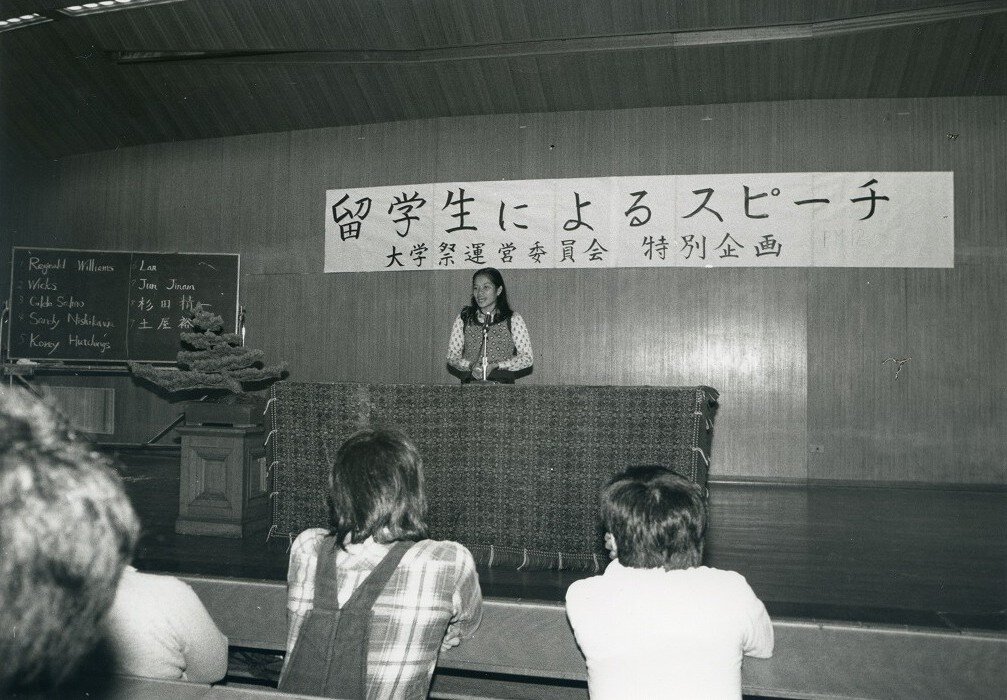 留学生によるスピーチ
大学祭運営委員会 特別企画
Reginald Williams
2 Wicks
3 Gilda Salmo
4 Sandy Nishikawa
5 Korey Hutchings
6 Lan
7 Jun Jinam
8 杉田
9 土屋